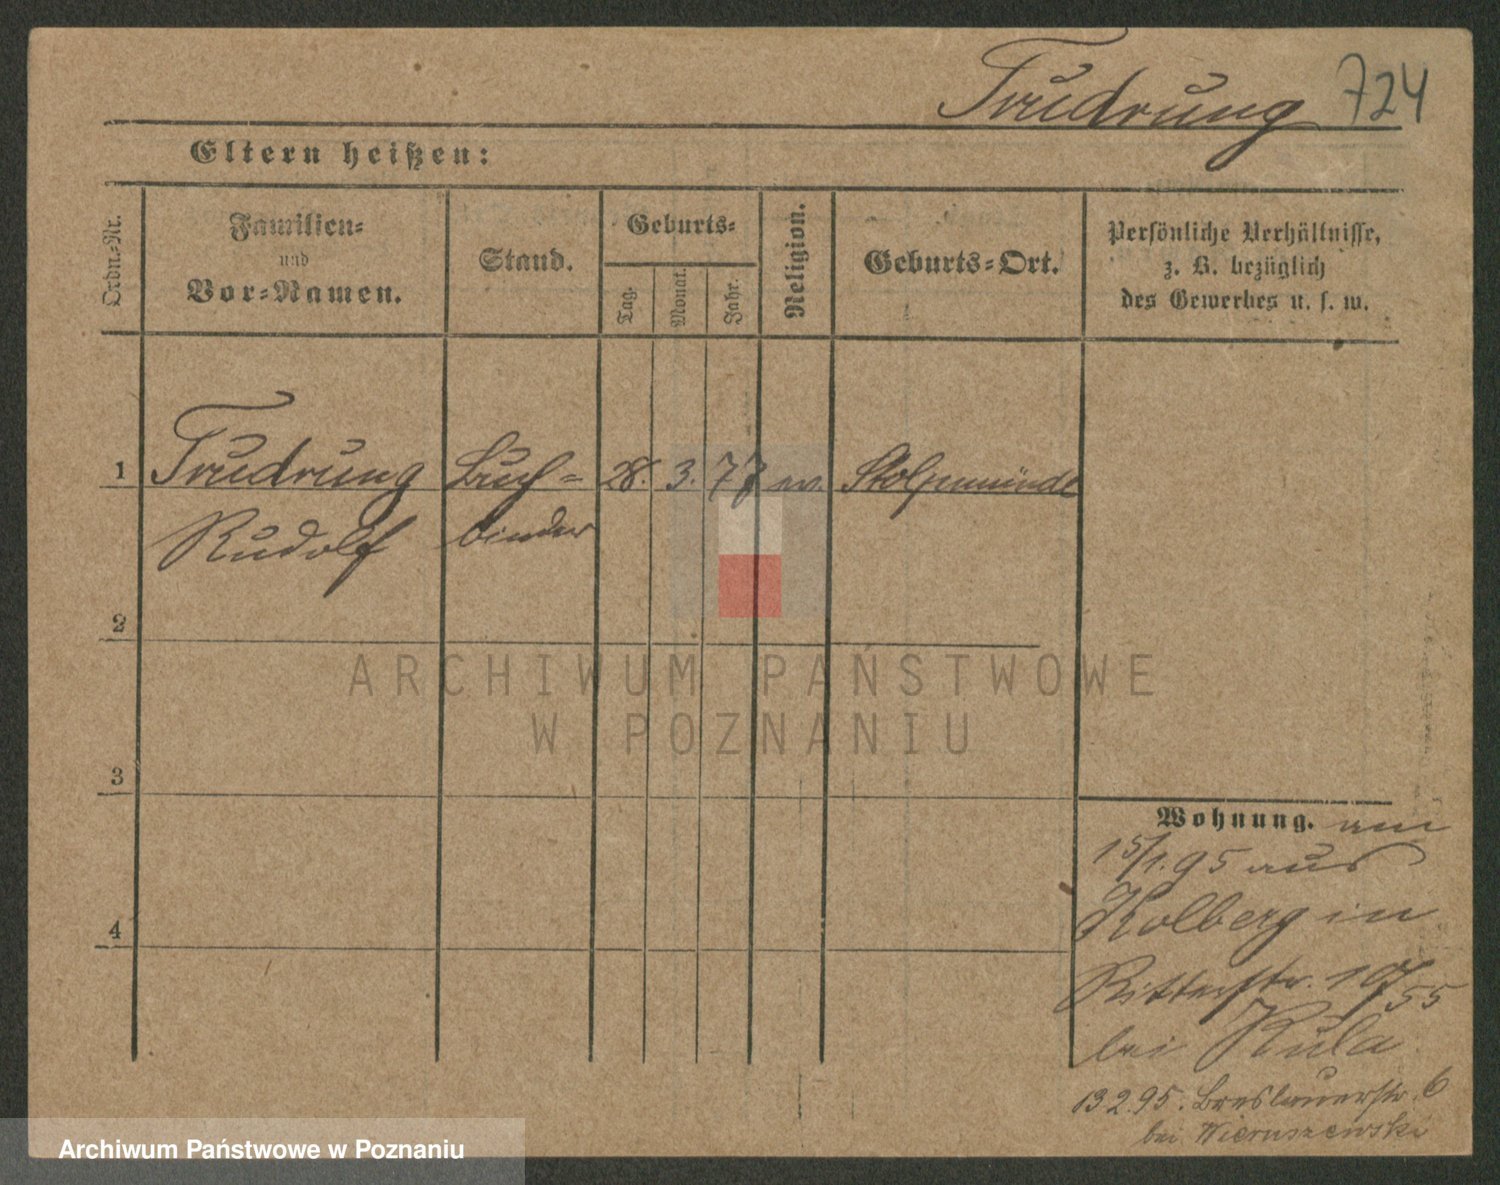 Trudrung 724
Eltern heißen:
Ordn.-Nr.
Familien-
und
Vor-Namen.
Stand.
Geburts-
Tag.
Monat.
Jahr.
Religion.
Geburts-Ort.
Persönliche Verhältnisse,
z. B. bezüglich
des Gewerbes u. s. w.
1 Trudrung Buch- 28. 3. 77 ev. Stolpmünde
Rudolf binder
2
3
4
Wohnung. am
15/1.95 aus
Kolberg in
Ritterstr.
bei Kula
13 2.95. Breslauerstr. 6
bei Wieruszewski
ARCHIWUM PAŃSTWOWE
W POZNANIU
Archiwum Państwowe w Poznaniu